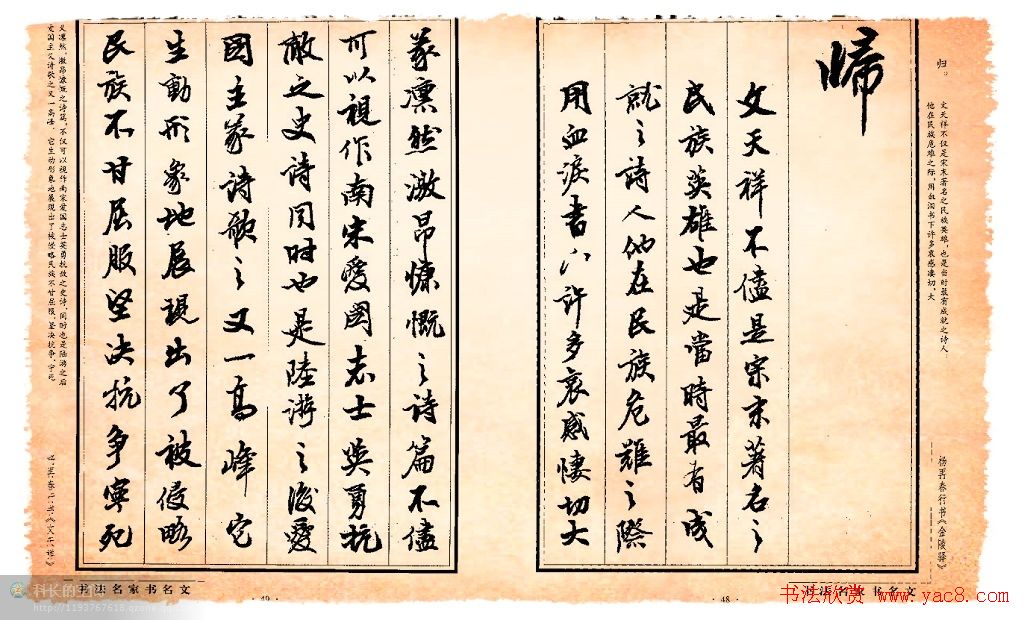 歸
文天祥不儘是宋末著名之
民族英雄也是當時最有成
就之詩人他在民族危難之際
用血淚書下許多哀感悽切大
義凛然激昂慷慨之詩篇不儘
可以視作南宋愛国志士英勇抗
敵之史诗同时也是陸游之後愛
國主義詩歌之又一高峰它
生動形象地展現出了被侵略
民族不甘屈服坚决抗争寧死
归。
文天祥不仅是宋末著名之民族英雄，也是当时最有成就之诗人，
他在民族危难之际，用血泪书下许多哀感凄切、大
杨再春行书《金陵驿》
义凛然、激昂慷慨之诗篇，不仅可以视作南宋爱国志士英勇抗敌之史诗，同时也是陆游之后
爱国主义诗歌之又一高峰。它生动形象地展现出了被侵略民族不甘屈服、坚决抗争、宁死
书法名家书名文
· 48 ·
书法名家书名文
· 49 ·
科长的空间
书法欣赏 www.yac8.com